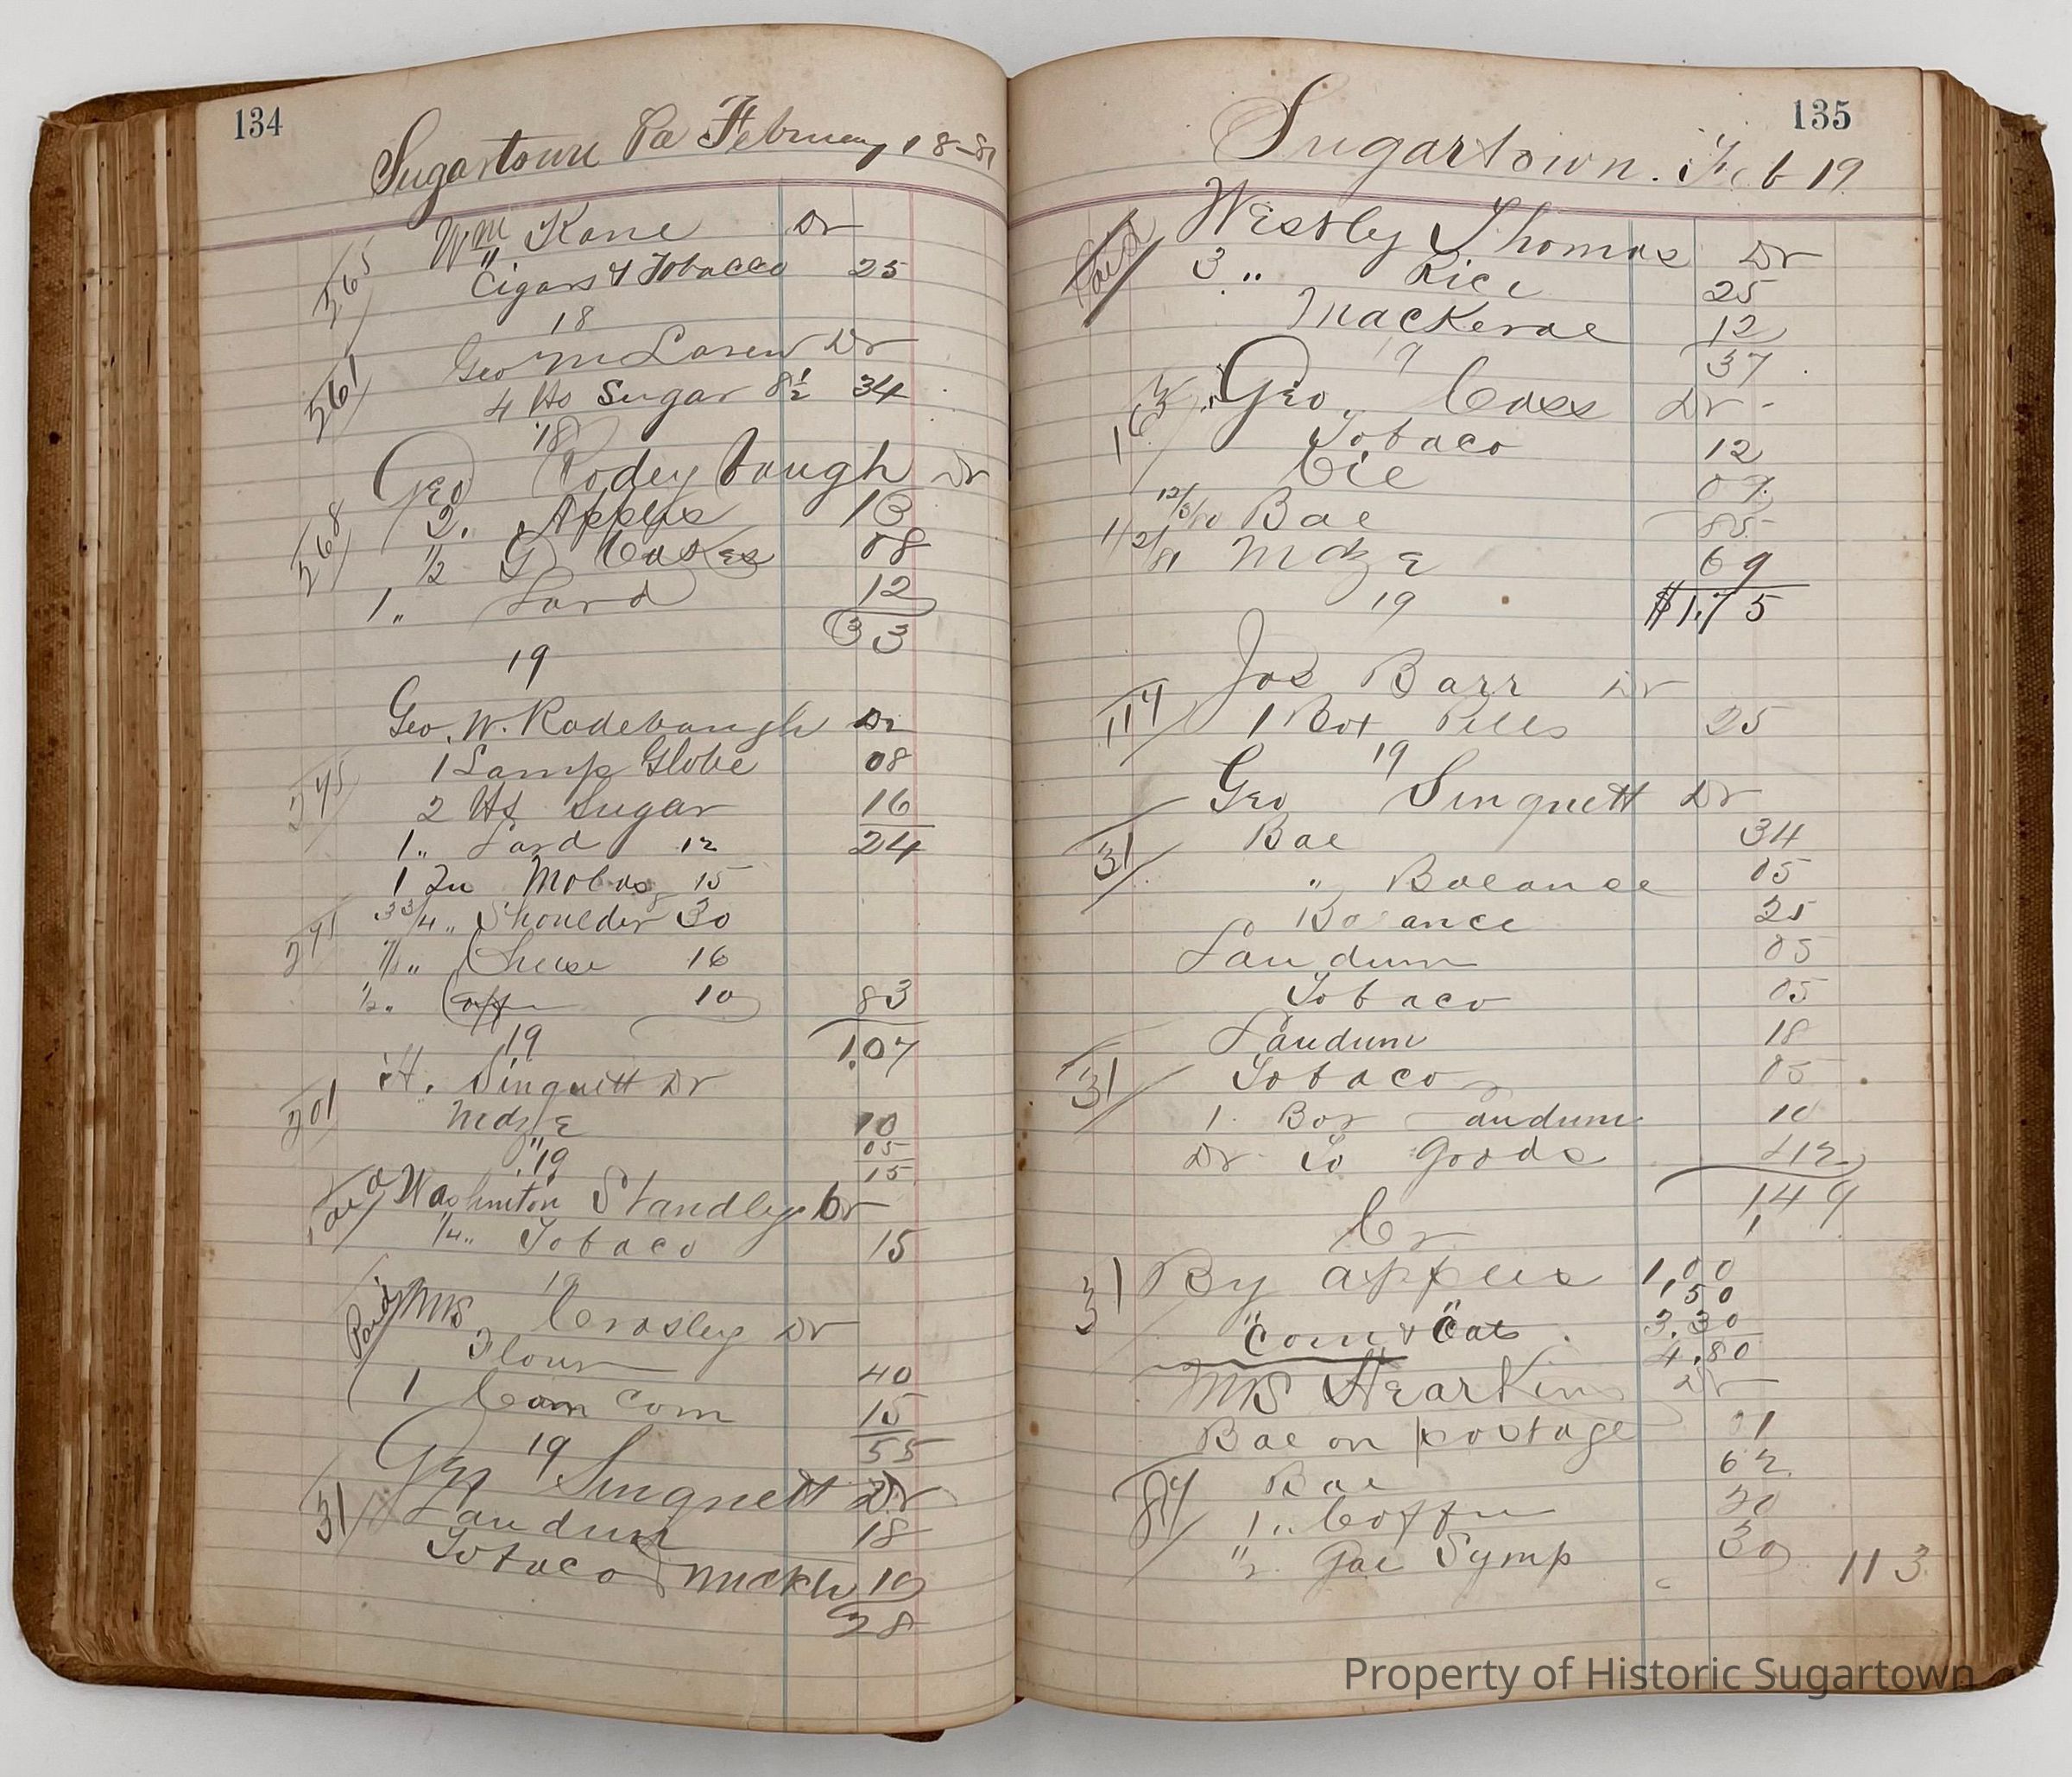 134
Sugartown Pa February 18-81
Wm Kane Dr
265
Cigars & Tobacco 25
18
Geo McLaren Dr
261
4 lbs Sugar 8½ 34
18
Geo Rodeybaugh Dr
2. Apples 13
268
½ G Cakes 08
1 " Lard 12
33
19
Geo. W. Radebaugh Dr
1 Lamp Globe 08
2 lbs Sugar 16
1 " Lard 12 24
1 Qu Molas 15
3 3/4 " Shoulder 30
" Cheese 16
½ " Coffee 10 83
19 1.07
H. Singuett Dr
201
Mdze 10
" 19 05
15
Paid Washinton Standley Dr
1/4 " Tobaco 15
19
Paid Mrs Crosley Dr
Flour 40
1 Can Corn 15
19 55
Geo Singuett Dr
31
Laudum 18
Tobaco 10
28
135
Sugartown. Feb 19
Paid Westly Thomas Dr
3 " Rice 25
Mackerae 12
19 37
163
Geo. Cass Dr
Tobaco 12
Cie 09
12/3/80 Bae 85
1/2/81 Mdze 69
19 $1.75
Jos Barr Dr
114
1 Box Pills 25
19
Geo Singuett Dr
31
Bae 34
" Baeance 05
Balance 25
Laudum 05
Tobaco 05
Laudum 18
31
Tobaco 05
1 Box audum 10
Dr To Goods 42
149
Cr
31 By apples 1,00
1,50
" Corn & Oats 3,30
4,80
Mrs Hearkins Dr
Bae on postage 01
84
Bae 62
1 " Coffee 20
" Gae Symp 30 113
Property of Historic Sugartown